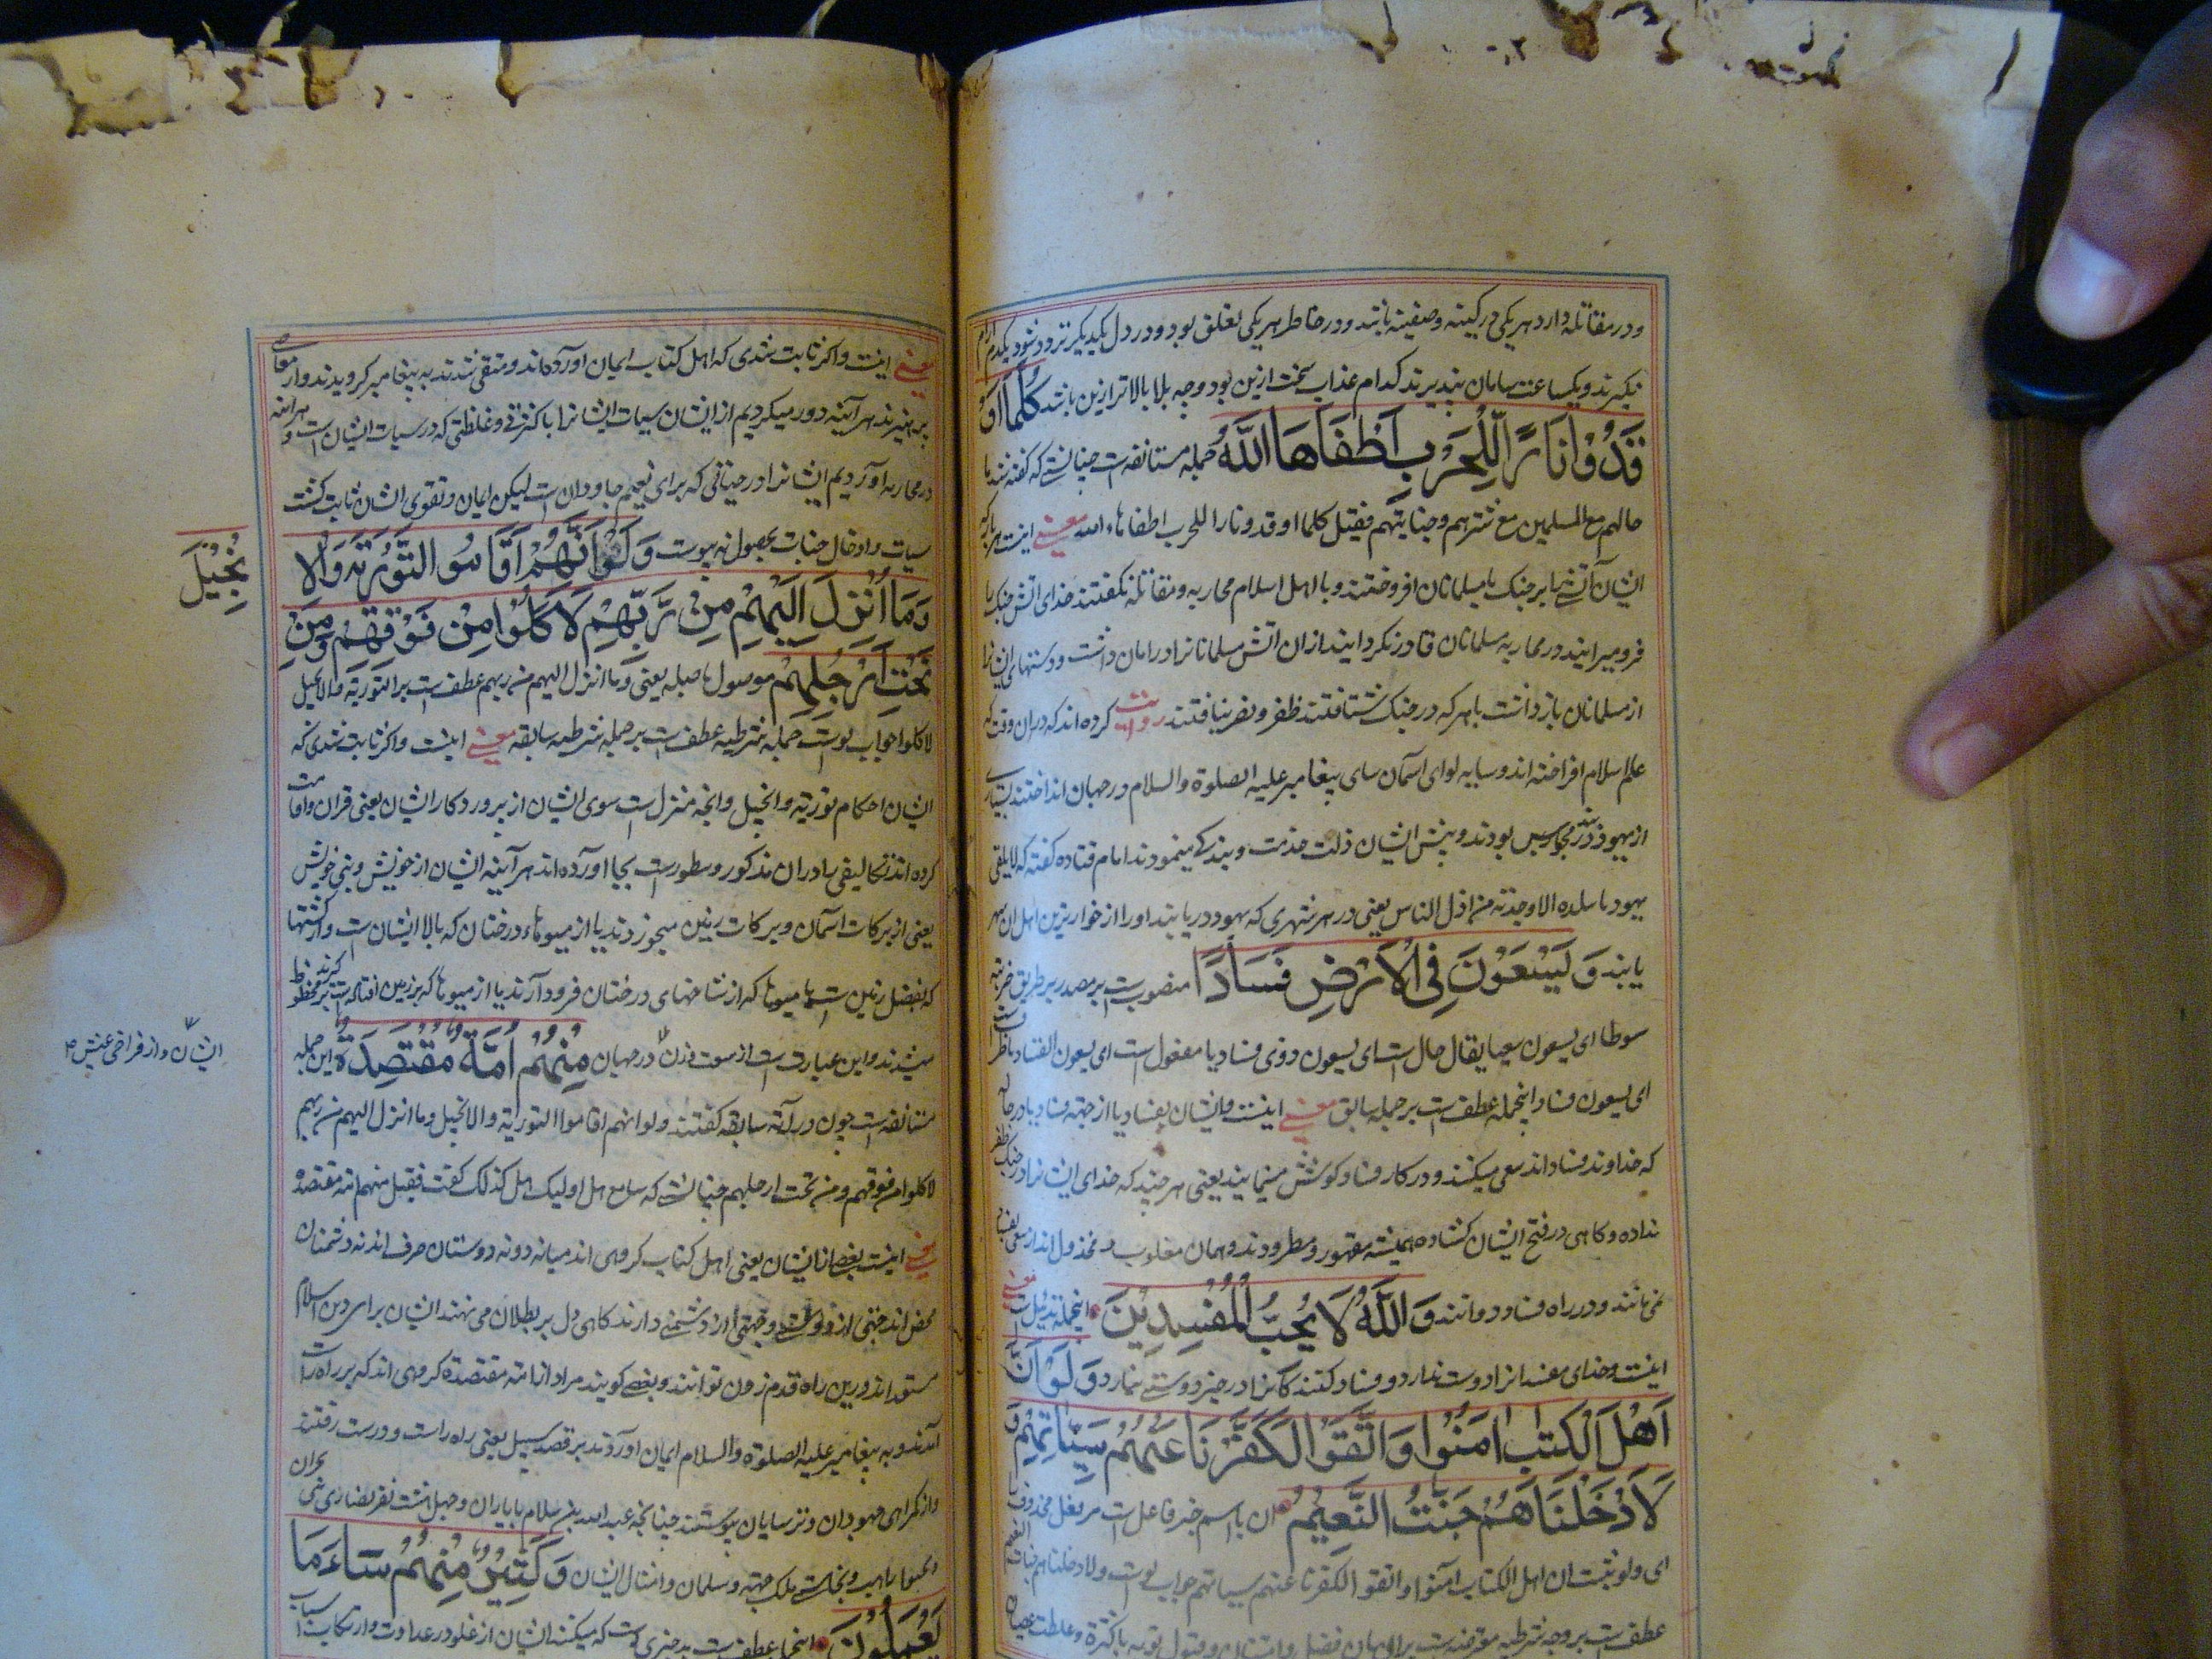 و در مقاتله دارد هر یکی در کینه و صغینه باشد و در خاطر هر یکی تعلق بود و در دل یکدیگر تردد شود یکدم آرام
نگیرند و یکساعت سامان نپذیرند کدام عذاب سخت ازین بود و چه بلا بالاتر ازین باشد كُلَّمَا اَوْ
قَدُوْا نَارًا لِّلْحَرْبِ اَطْفَاَهَا اللّٰهُ جمله مستانفه است چنانستی که گفته شد ما
حالهم مع المسلمین مع شرهم وجنایتهم فقیل کلما اوقدوا نارا للحرب اطفاها الله معنی اینست هر بار که
ایشان آتشی برای جنک با مسلمانان افروختند و با اهل اسلام محاربه و مقاتله گفتند خدای آتش جنک را
فرو میرانید و در محاربه مسلمانان قادر نکردانید از ان آتش مسلمانانرا در امان داشت و دستهای ایشانرا
از مسلمانان بازداشت با هر که در جنک شتافتند ظفر و نصر نیافتند روایت کرده اند که در ان وقت که
علم اسلام افراخته اند و سایه لوای آسمان سای پیغامبر علیه الصلوة والسلام در جهان انداختند بسیاری
از یهود در مجوس بودند و پیش ایشان ذلت خدمت و بندگی مینمودند امام قتاده گفته که لا یلقی
یهود ببلدة الا وجدته من اذل الناس یعنی در هر شهری که یهود دریابند او را از خوارترین اهل ان شهر
یابند وَ يَسْعَوْنَ فِي الْاَرْضِ فَسَادًا منصوب است بر مصدر بر طریق ضربته
سوطا ای یسعون سعیا یقال حال است ای یسعون ذوی فساد یا مفعول است ای یسعون الفساد
ای یسعون فسادا اینجمله عطف است بر جمله سابق معنی اینست و ایشان بفساد یا از جهة فساد یا در حالی
که خداوند فساد اند سعی میکنند و در کار فساد کوشش مینمایند یعنی هر چند که خدای ایشانرا در جنک ظفر
نداده و کاهی در فتح ایشان کشاده همیشه مقهور و مطرودند و همان مغلوب و مخذول اند از سعی بفساد
نمی مانند و در راه فساد دوانند وَ اللّٰهُ لَا يُحِبُّ الْمُفْسِدِيْنَ اینجمله تذییل است معنی
اینست و خدای مفسدانرا دوست ندارد و فساد کنندکانرا در حیز دوستی نیارد وَ لَوْ اَنَّ
اَهْلَ الْكِتٰبِ اٰمَنُوْا وَ اتَّقَوْا لَكَفَّرْنَا عَنْهُمْ سَيِّاٰتِهِمْ وَ
لَاَدْخَلْنٰهُمْ جَنّٰتِ النَّعِيْمِ ان با اسم خبر فاعل است مر فعل محذوف را
ای ولو ثبت ان اهل الکتاب آمنوا واتقوا لکفرنا عنهم سیاتهم جواب لو است ولادخلناهم جنات النعیم
عطف است بر وجه شرطیه معترضه است برای بیان فضل و امتنان و قبول توبه با کثرة و غلظت عصیان
معنی اینست و اکر ثابت شدی که اهل کتاب ایمان آورده اند و متقی شدند به پیغامبر کرویدند و از معاصی
پرهیزند هر آینه دور میکردیم از ایشان سیات ایشانرا با کثرتی و غلظتی که در سیات ایشان است و هر اینه
در می آوردیم ایشانرا در جنانی که برای نعیم جاودان است لیکن ایمان و تقوی ایشان ثابت نکشت
سیات و ادخال جنات بحصول نه پیوست وَ لَوْ اَنَّهُمْ اَقَامُوا التَّوْرٰىةَ وَ الْاِ
نْجِيْلَ
وَ مَا اُنْزِلَ اِلَيْهِمْ مِنْ رَّبِّهِمْ لَاَكَلُوْا مِنْ فَوْقِهِمْ وَ مِنْ
تَحْتِ اَرْجُلِهِمْ موصول با صله یعنی وما انزل الیهم من ربهم عطف است بر التوریة والانجیل
لاکلوا جواب لو است جمله شرطیه عطف است بر جمله شرطیه سابقه معنی اینست و اکر ثابت شدی که
ایشان احکام توریة و انجیل و انچه منزل است سوی ایشان از پروردکار ایشان یعنی قران و اقامت
کرده اند تکالیفی را در ان مذکور و مسطور است بجا آورده اند هر آینه ایشان از خویش و بنی خویش
یعنی از برکات اسمان و برکات زمین میخوردند یا از میوهاء درختان که بالا ایشان است و از کشتها
که بفضل زمین است یا میوها که از شاخهای درختان فرود آرند یا از میوها که بر زمین افتاده است برگیرند محظوظ
میشدند و این عبارت است از سعت رزق در جهان مِنْهُمْ اُمَّةٌ مُقْتَصِدَةٌ این جمله
ایشان و از فراخی عیش
مستانفه است چون در آیة سابقه گفتند ولو انهم اقاموا التوریة والانجیل وما انزل الیهم من ربهم
لاکلوا من فوقهم ومن تحت ارجلهم چنانستی که سامع اهل اولیک اهل کذلک گفت فقیل منهم امة مقتصدة
معنی اینست بعضی از ایشان یعنی اهل کتاب کروهی اند میانه رو نه دوستان صرف اند نه دشمنان
محض اند جهتی از دوستی و جهتی از دشمنی دارند کاهی دل بر بطلان می نهند ایشان برای دین اسلام
مستعد اند و درین راه قدم زدن توانند و بعضی کویند مراد از امة مقتصدة کروهی اند که بر راه راست
آمدند و به پیغامبر علیه الصلوة والسلام ایمان آوردند بر قصد سبیل یعنی راه راست و درست رفتند
و از کمراهی جهودان و ترسایان پیوستند چنانچه عبد الله بن سلام با یاران و چهل هشت نفر نصاری نجران
و بحیرا راهب و نجاشی ملک حبشه و سلمان و امثال ایشان وَ كَثِيْرٌ مِنْهُمْ سَاءَ مَا
يَعْمَلُوْنَ اینجا عطف است بد چیزی است که میکنند ایشان از غلو در عداوت و ارتکاب